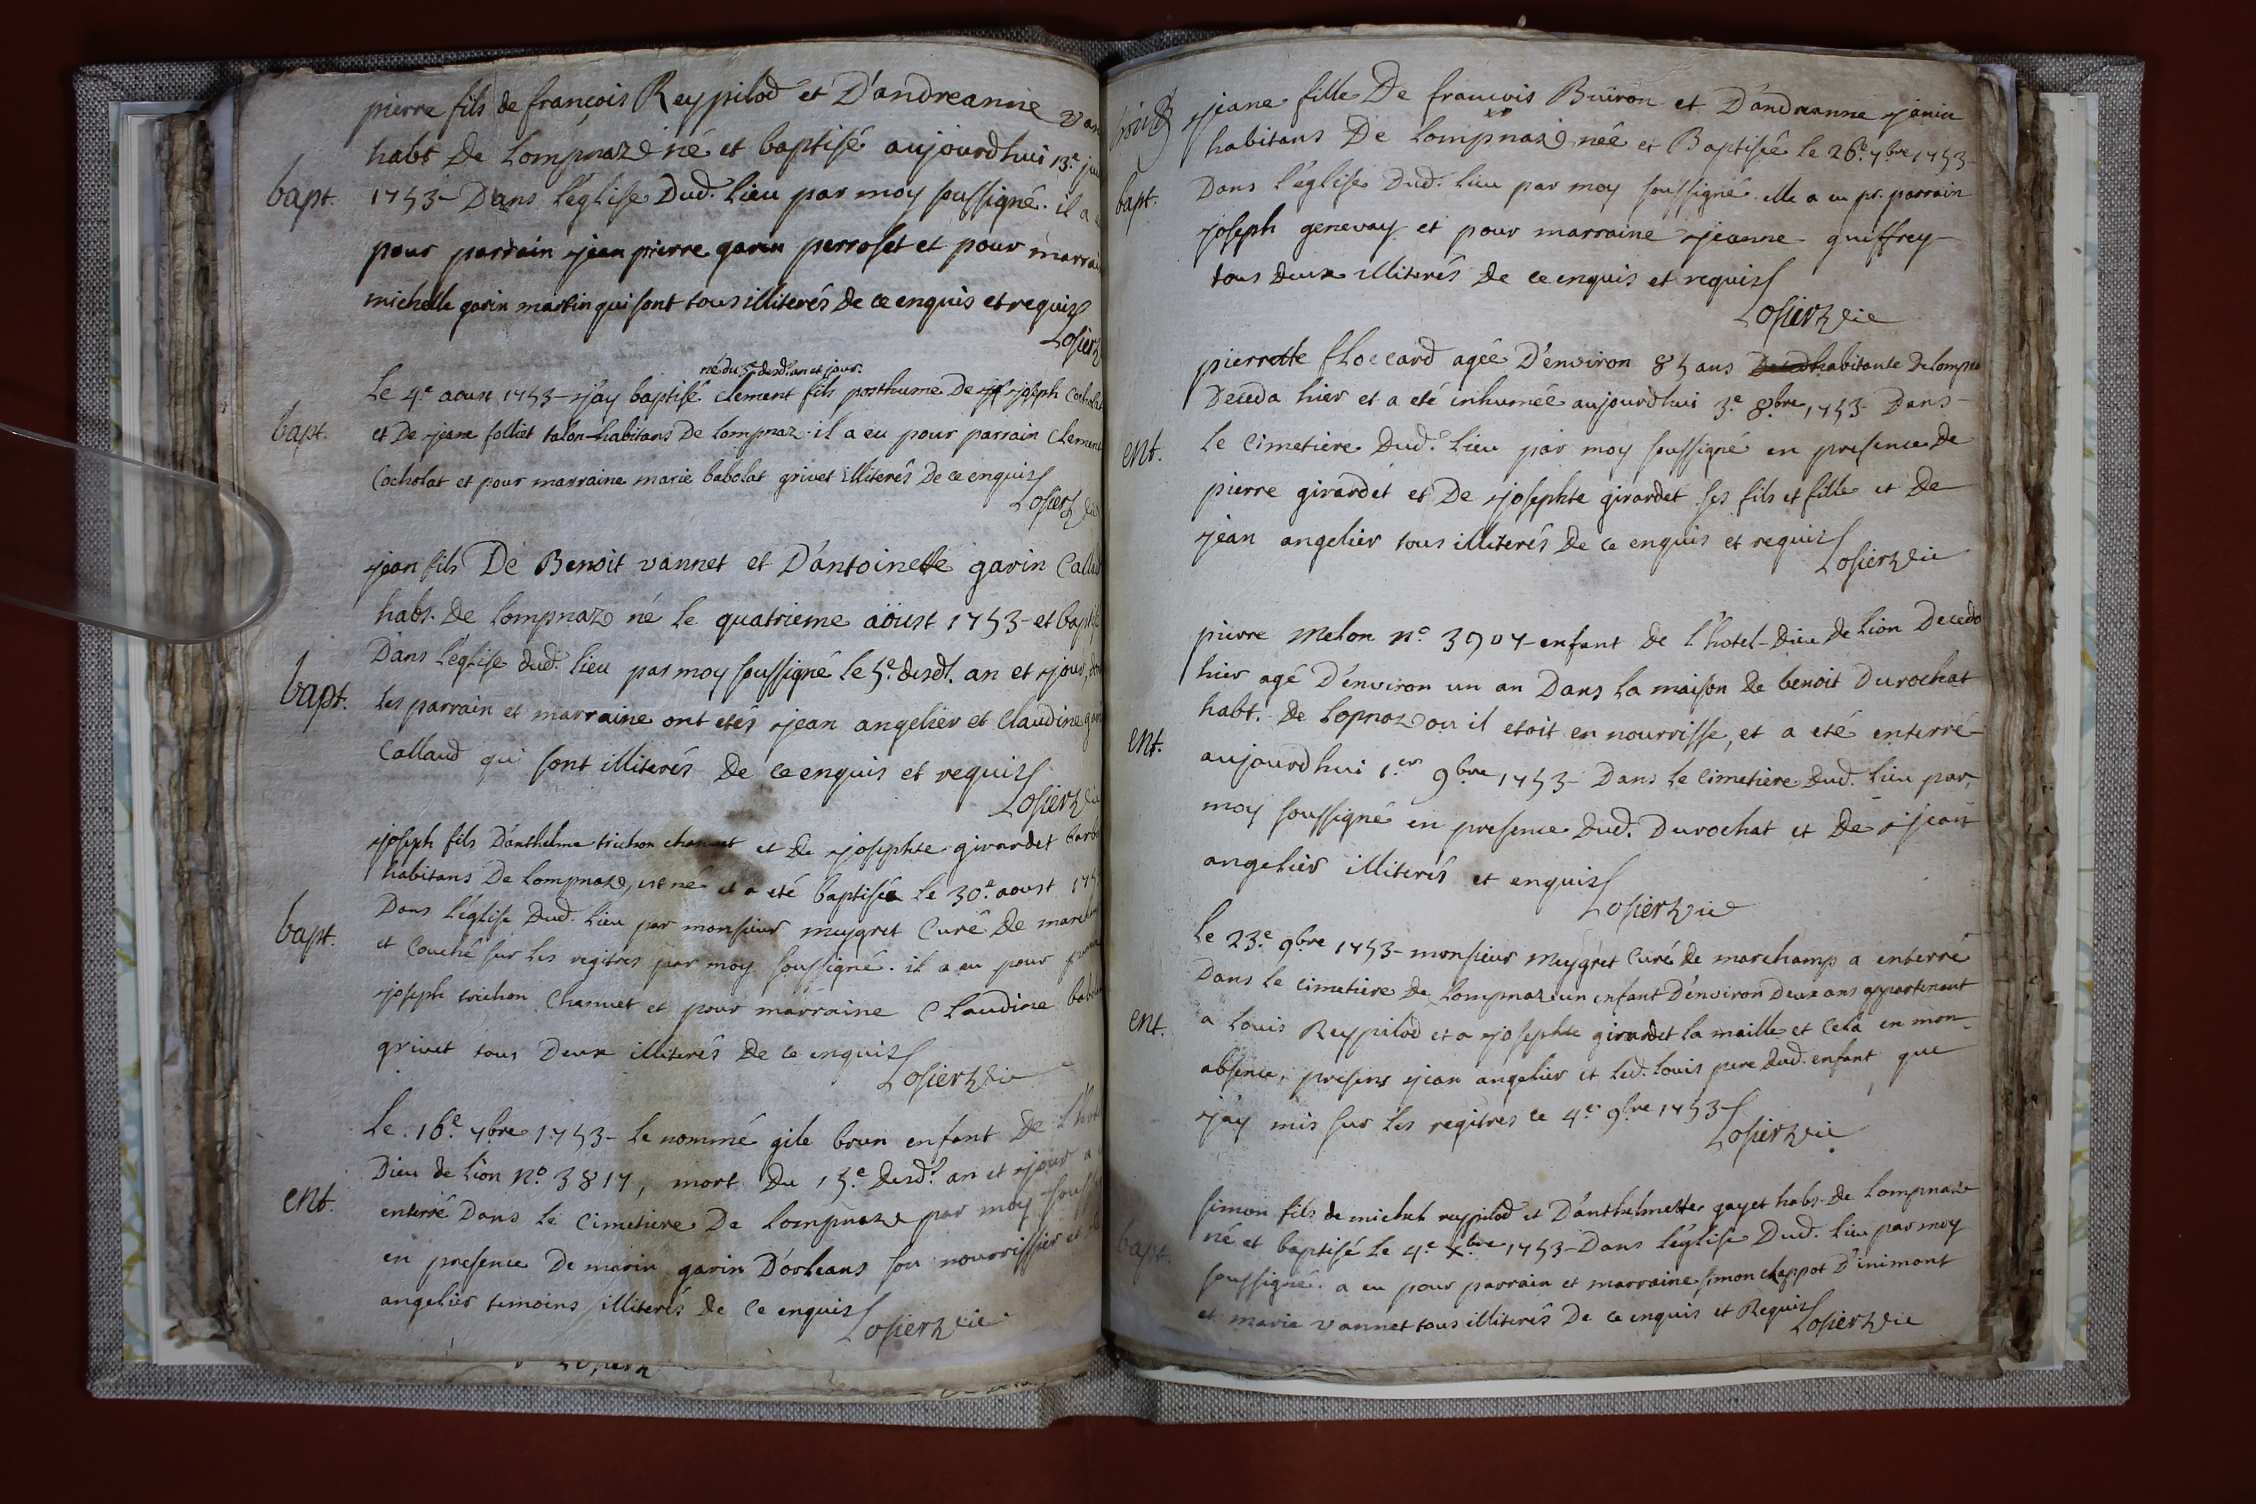 pierre fils de françois Reypilod et D'andreanne van
habt De Lompnaz né et baptisé aujourdhui 13.e jui
bapt. 1753 - Dans l'église Dud. lieu par moy soussigné. il a
pour parrain jean pierre garin perroset et pour marrai
michelle garin martin qui sont tous illiterés de ce enquis et requis
Losier
né du 3e desd. an et jour.
Le 4e aoust 1753 - j'ay baptisé clement fils posthume De joseph Cocholat
bapt. et De jeane folliet talon habitans De lompnaz. il a eu pour parrain Clement
Cocholat et pour marraine marie babolat grivet illiterés De ce enquis
Losier vic
jean fils De Benoit vannet et D'antoinette garin Callau
habs. De lompnaz né le quatrieme aoust 1753 - et bapt
Dans l'église dud. lieu par moy soussigné le 5.e desdt. an et jour,
bapt. les parrain et marraine ont etés jean angelier et Claudine gar
Callaud qui sont illiterés De ce enquis et requis
Losier vic
joseph fils D'anthelme trichon chanuet et de josephte girardet barb
habitans De lompnaz, est né et a eté baptisé le 30.e aoust 175
bapt. Dans l'église Dud. lieu par monsieur meygret Curé De march
et Couché sur les registres par moy soussigné. il a eu pour
joseph trichon Chanuet et pour marraine Claudine bab
grivet tous Deux illiterés De ce enquis
Losier vic
Le 16.e 7bre 1753 - le nommé gile brun enfant De l'hot
Dieu de lion No. 3817, mort Du 15.e desdt. an et jour a
ent. enterré Dans le Cimetiere De lompnaz par moy souss
en presence De marin garin D'orleans son nourrissier et
angelier temoins illiterés de ce enquis
Losier vic
jeane fille De francois Buiron et D'andreanne janin
habitans De lompnaz née et Baptisée le 26.e 7bre 1753
bapt. Dans l'église Dud. lieu par moy soussigné. elle a eu pr. parrain
joseph genevay et pour marraine jeanne guiffrey
tous deux illiterés de ce enquis et requis
Losier vic
pierrette floccard agée D'environ 85 ans habitante De lompna
Deceda hier et a eté inhumée aujourdhui 3.e 8.bre 1753 - Dans
ent. le Cimetiere Dud. lieu par moy soussigné en presence De
pierre girardet et De josephte girardet ses fils et fille et De
jean angelier tous illiterés De ce enquis et requis
Losier vic
pierre melon no. 3907 - enfant de l'hotel-Dieu de lion Deceda
hier agé D'environ un an Dans la maison de benoit Durochat
habt. De Lopnaz ou il etoit en nourrisse, et a eté enterré
ent. aujourdhui 1.er 9.bre 1753 - Dans le cimetiere Dud. lieu par
moy soussigné en presence Dud. Durochat et De jean
angelier illiterés et enquis
Losier vic
Le 23.e 9.bre 1753 - monsieur meygret Curé de marchamp a enterré
Dans le cimetiere de Lompnaz un enfant D'environ Deux ans appartenant
ent. a Louis Reypilod et a josephte girardet la maille et Cela en mon
absence, presens jean angelier et led. louis pere dud. enfant que
j'ay mis sur les registres ce 4.e 9.bre 1753
Losier vic
simon fils de michel reypilod et D'anthelmette gayet habs. de lompnaz
bapt. né et baptisé le 4.e Xbre 1753 - Dans l'église Dud. lieu par moy
soussigné. a eu pour parrain et marraine simon chappot D'inimont
et marie vannet tous illiterés De ce enquis et Requis
Losier vic